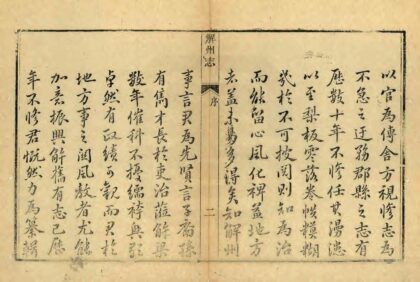 以官為傳舍方視修志為
不急之迂務郡縣之志有
歷數十年不修任其漫漶
以至梨板零落卷帙模糊
幾於不可披閱則知為治
而能留心風化裨益地方
者蓋未易多得矣知解州
解州志
序
二
事言君為先賢言子裔孫
有儁才長於吏治蒞解梁
數年催科不擾襦袴興歌
卓然有政績可觀而君於
地方事之關風教者尤能
加意振興解舊有志已歷
年不修君慨然力為纂輯